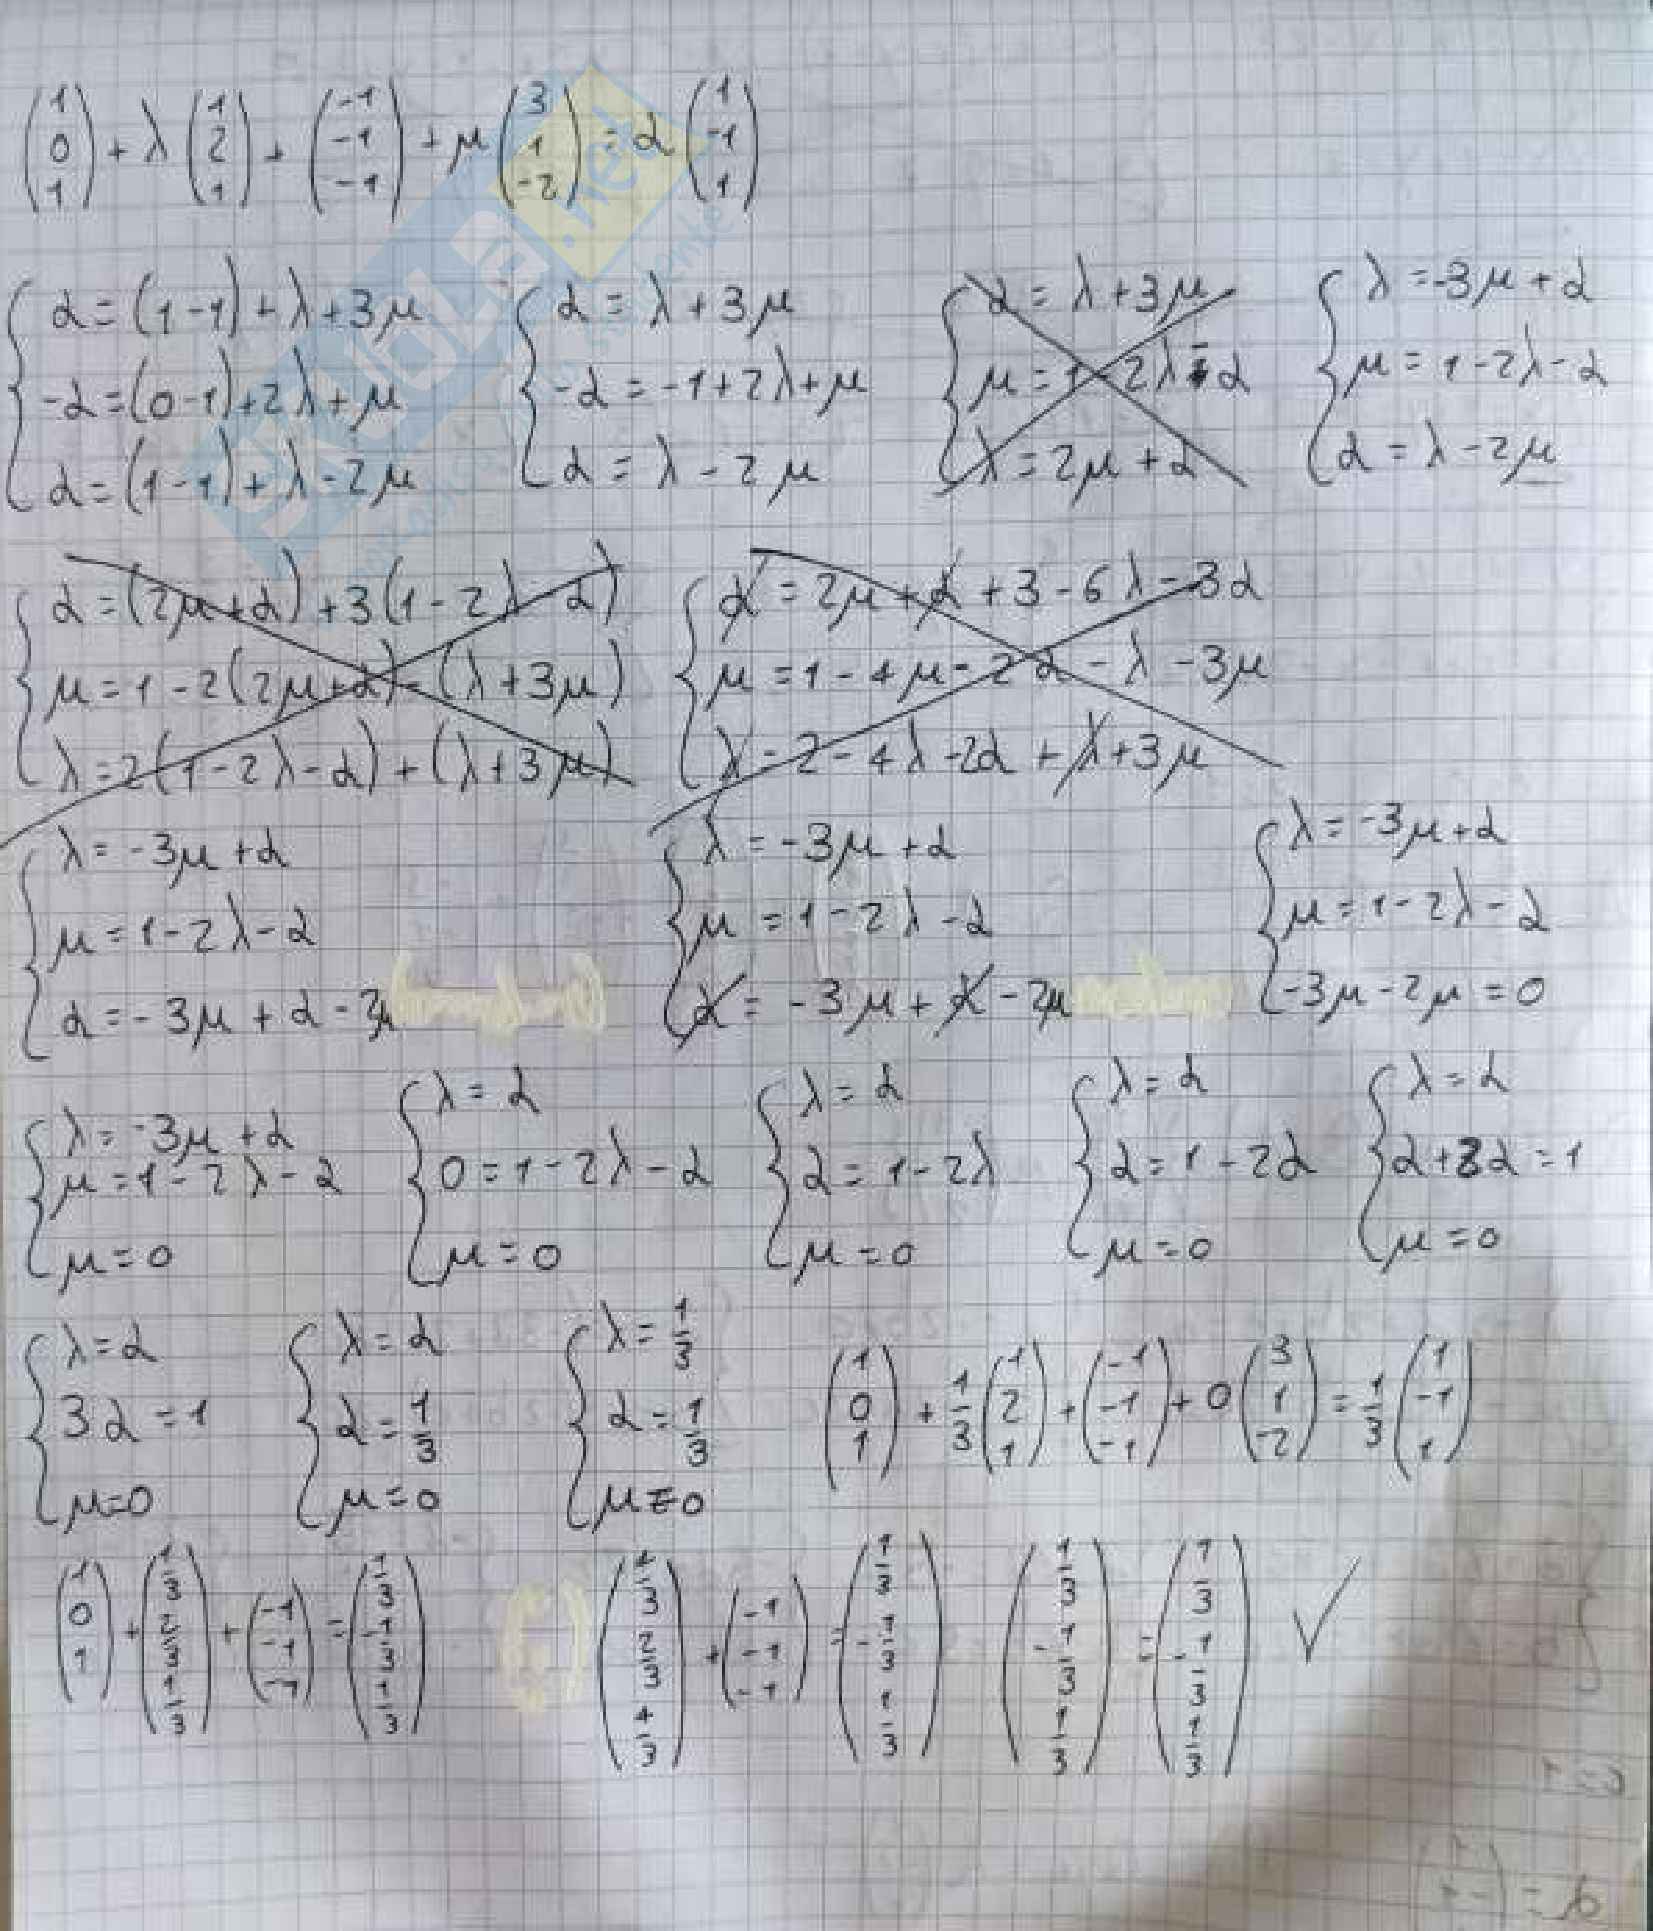 (1 0 1) + λ (1 2 1) + (-1 -1 -1) + μ (3 1 -2) = α (1 -1 1)
{ α = (1-1) + λ + 3μ
-α = (0-1) + 2λ + μ
α = (1-1) + λ - 2μ
{ α = λ + 3μ
-α = -1 + 2λ + μ
α = λ - 2μ
{ α = λ + 3μ
μ = 1 - 2λ - α
λ = 2μ + α
{ λ = -3μ + α
μ = 1 - 2λ - α
α = λ - 2μ
{ α = (2μ + α) + 3(1 - 2λ - α)
μ = 1 - 2(2μ + α) - (λ + 3μ)
λ = 2(1 - 2λ - α) + (λ + 3μ)
{ α = 2μ + α + 3 - 6λ - 3α
μ = 1 - 4μ - 2α - λ - 3μ
λ = 2 - 4λ - 2α + λ + 3μ
{ λ = -3μ + α
μ = 1 - 2λ - α
α = -3μ + α - 2μ
{ λ = -3μ + α
μ = 1 - 2λ - α
α = -3μ + α - 2μ
{ λ = -3μ + α
μ = 1 - 2λ - α
-3μ - 2μ = 0
{ λ = -3μ + α
μ = 1 - 2λ - α
μ = 0
{ λ = α
0 = 1 - 2λ - α
μ = 0
{ λ = α
α = 1 - 2λ
μ = 0
{ λ = α
α = 1 - 2α
μ = 0
{ λ = α
α + 2α = 1
μ = 0
{ λ = α
3α = 1
μ = 0
{ λ = α
α = 1/3
μ = 0
{ λ = 1/3
α = 1/3
μ = 0
(1 0 1) + 1/3 (1 2 1) + (-1 -1 -1) + 0 (3 1 -2) = 1/3 (1 -1 1)
(1 0 1) + (1/3 2/3 1/3) + (-1 -1 -1) = (1/3 -1/3 1/3)
(4/3 2/3 4/3) + (-1 -1 -1) = (1/3 -1/3 1/3)
(1/3 -1/3 1/3) = (1/3 -1/3 1/3) ✓
SKUOLA.net